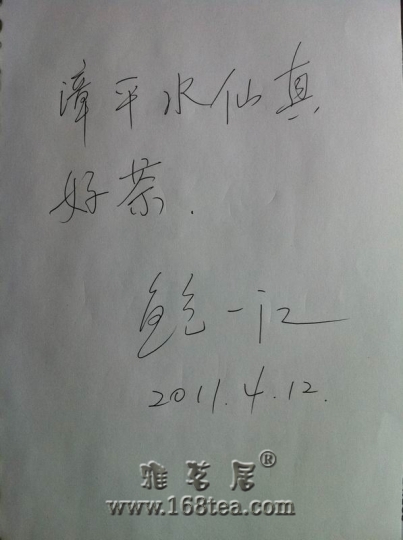 漳平水仙真
好茶.
鲍一江
2011.4.12.
雅茗居®
www.168tea.com